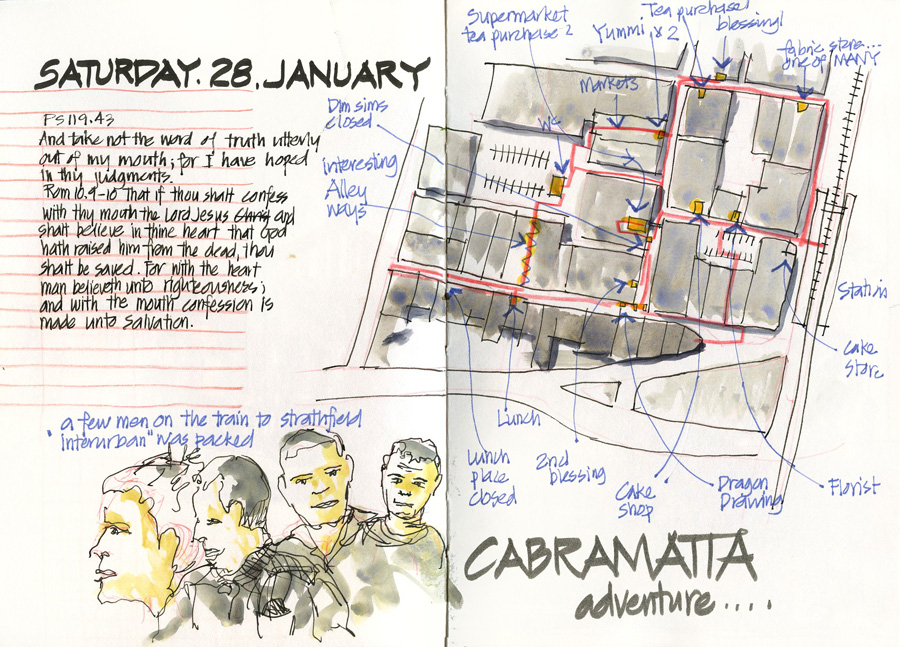 SATURDAY. 28. JANUARY
PS 119.43
And take not the word of truth utterly
out of my mouth; for I have hoped
in thy judgments.
Rom 10.9-10 That if thou shalt confess
with thy mouth the Lord Jesus Christ and
shalt believe in thine heart that God
hath raised him from the dead, thou
shalt be saved. For with the heart
man believeth unto righteousness;
and with the mouth confession is
made unto salvation.
"a few men on the train to Strathfield
interurban" was packed
Supermarket
tea purchase 2
Yummi x 2
Tea purchase1
blessing1
fabric store...
one of MANY
Dim sims
closed
markets
WC
interesting
Alley
ways
Station
Cake
Store
Lunch
Lunch
place
closed
2nd
blessing
Cake
Shop
Dragon
Drawing
Florist
CABRAMATTA
adventure....